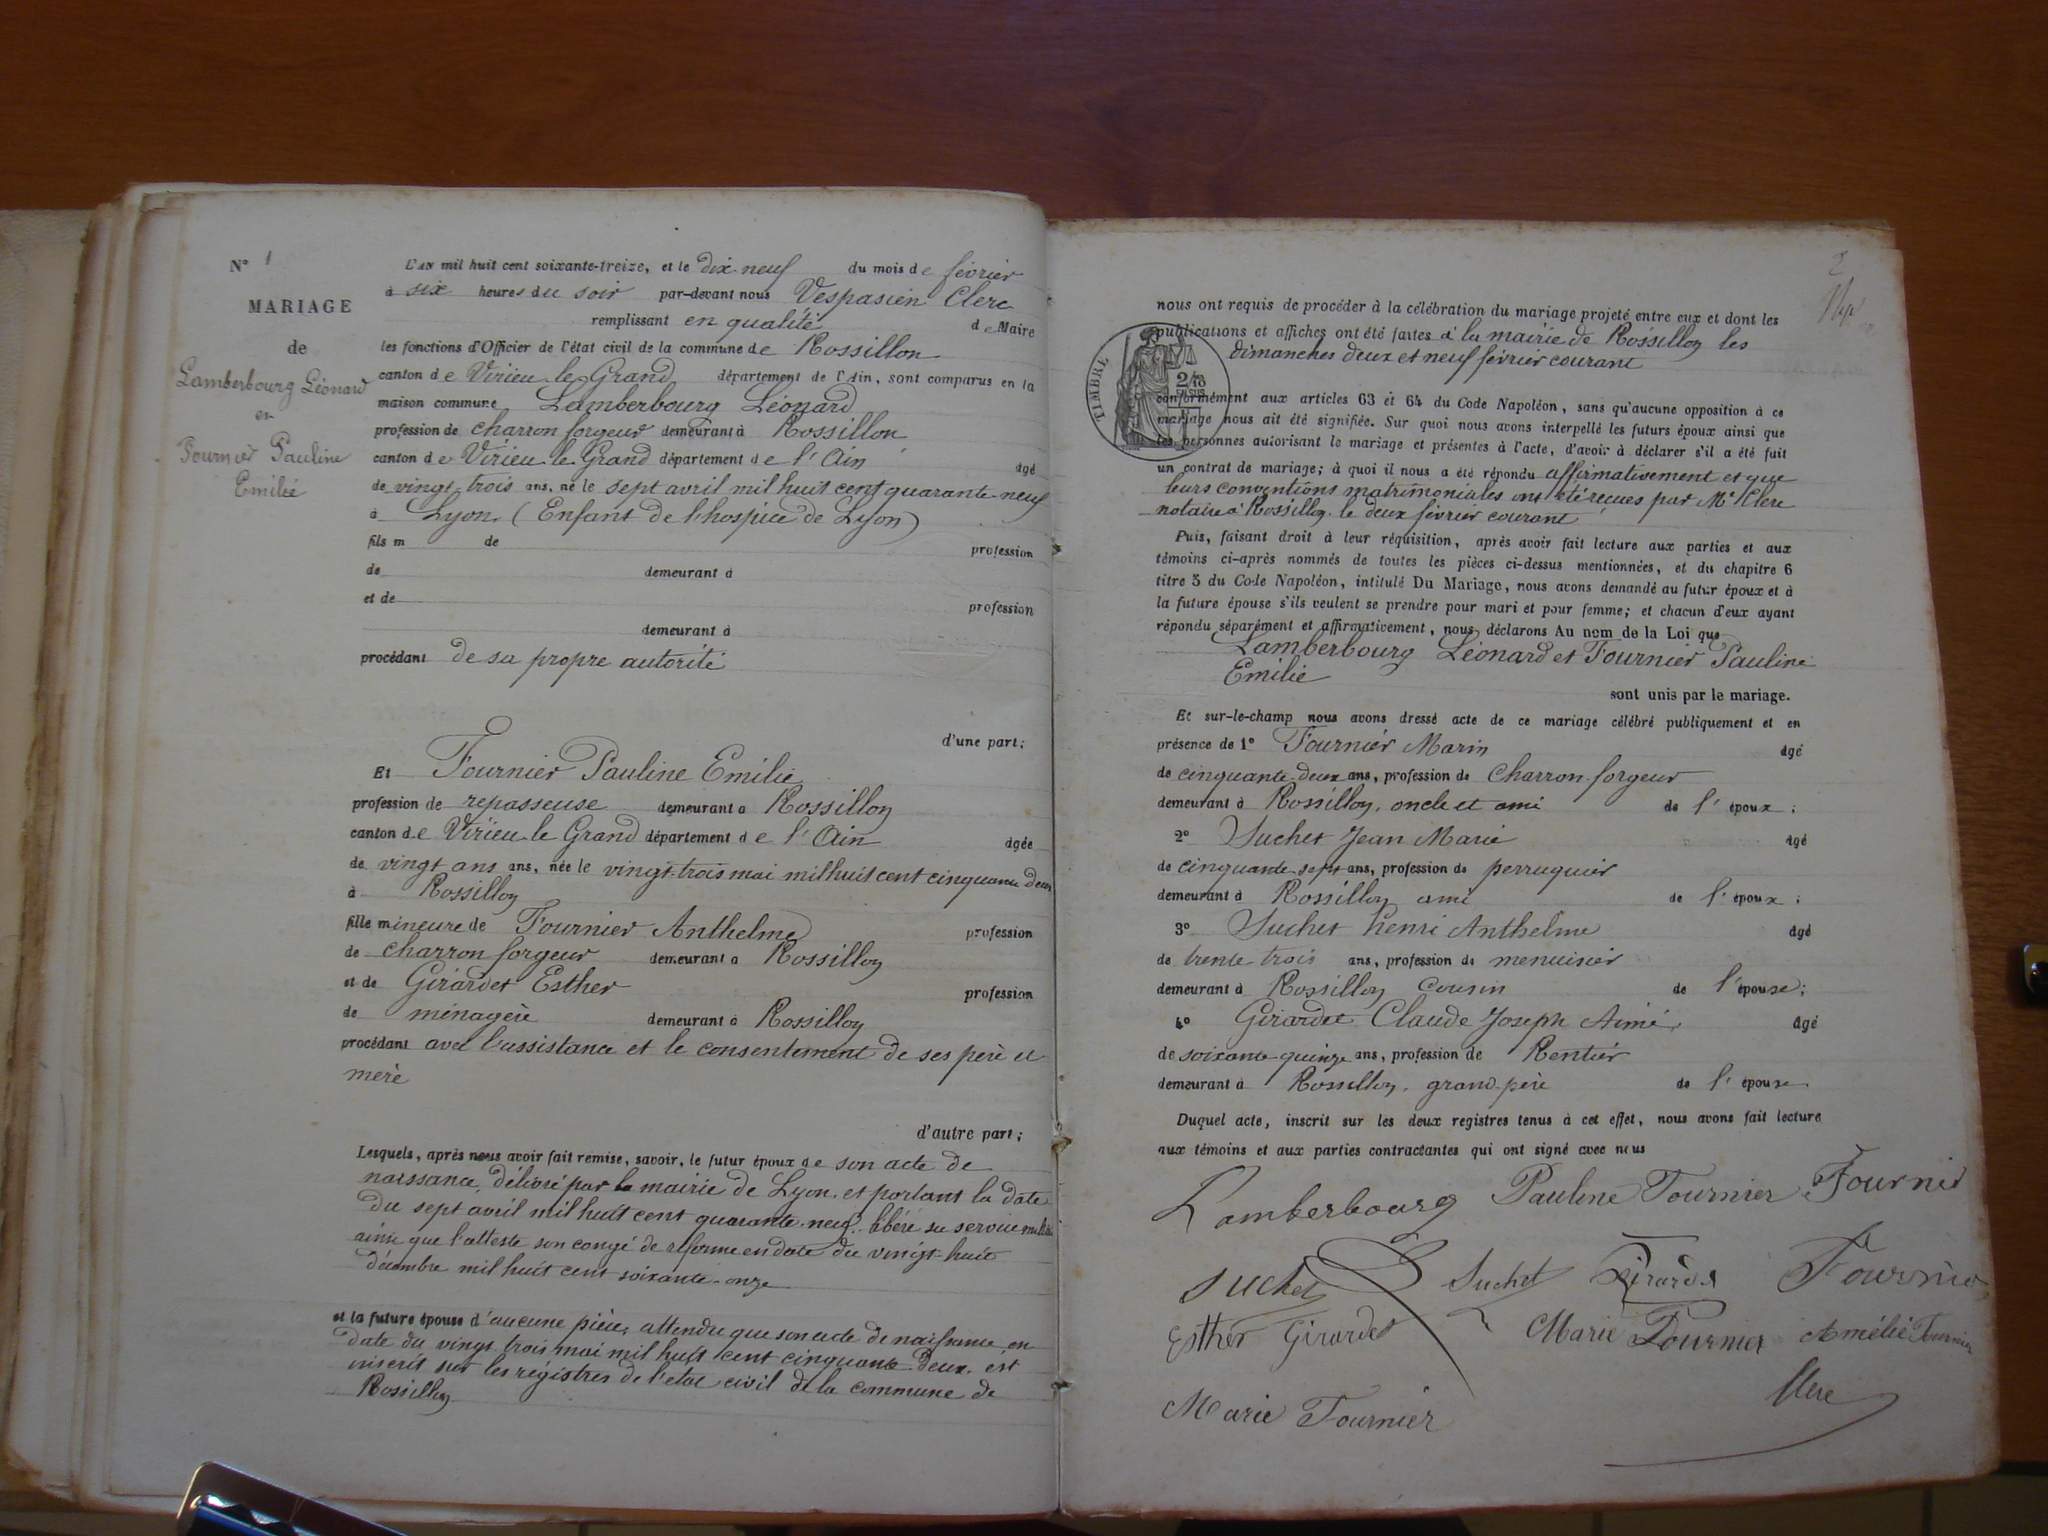 N° 1
MARIAGE
de
Lamberbourg Léonard
et
Fournier Pauline
Emilie
L'AN mil huit cent soixante-treize, et le dix-neuf du mois de février
à six heures du soir par-devant nous Vespasien Clerc
remplissant en qualité de Maire
les fonctions d'Officier de l'état civil de la commune de Rossillon
canton de Virieu le Grand département de l'Ain, sont comparus en la
maison commune Lamberbourg Léonard
profession de charron forgeur demeurant à Rossillon
canton de Virieu le Grand département de l'Ain âgé
de vingt-trois ans, né le sept avril mil huit cent quarante-neuf
à Lyon (Enfant de l'hospice de Lyon)
fils m de profession
de demeurant à
et de profession
demeurant à
procédant de sa propre autorité
d'une part;
Et Fournier Pauline Emilie
profession de repasseuse demeurant à Rossillon
canton de Virieu le Grand département de l'Ain âgée
de vingt ans ans, née le vingt-trois mai mil huit cent cinquante deux
à Rossillon
fille mineure de Fournier Anthelme profession
de charron forgeur demeurant à Rossillon
et de Girardet Esther profession
de ménagère demeurant à Rossillon
procédant avec l'assistance et le consentement de ses père et
mère
d'autre part;
Lesquels, après nous avoir fait remise, savoir, le futur époux de son acte de
naissance, délivré par la mairie de Lyon, et portant la date
du sept avril mil huit cent quarante-neuf. libéré du service
ainsi que l'atteste son congé de réforme en date du vingt-huit
décembre mil huit cent soixante-onze
et la future épouse d'aucune pièce, attendu que son acte de naissance en
date du vingt trois mai mil huit cent cinquante deux, est
inscrit sur les régistres de l'état civil de la commune de
Rossillon
2
nous ont requis de procéder à la célébration du mariage projeté entre eux et dont les
publications et affiches ont été faites à la mairie de Rossillon les
dimanches deux et neuf février courant
TIMBRE
2/10
EN SUS
conformément aux articles 63 et 64 du Code Napoléon, sans qu'aucune opposition à ce
mariage nous ait été signifiée. Sur quoi nous avons interpellé les futurs époux ainsi que
les personnes autorisant le mariage et présentes à l'acte, d'avoir à déclarer s'il a été fait
un contrat de mariage; à quoi il nous a été répondu affirmativement et que
leurs conventions matrimoniales ont été reçues par Me Clerc
notaire à Rossillon le deux février courant
Puis, faisant droit à leur réquisition, après avoir fait lecture aux parties et aux
témoins ci-après nommés de toutes les pièces ci-dessus mentionnées, et du chapitre 6
titre 5 du Code Napoléon, intitulé Du Mariage, nous avons demandé au futur époux et à
la future épouse s'ils veulent se prendre pour mari et pour femme; et chacun d'eux ayant
répondu séparément et affirmativement, nous déclarons Au nom de la Loi que
Lamberbourg Léonard et Fournier Pauline
Emilie
sont unis par le mariage.
Et sur-le-champ nous avons dressé acte de ce mariage célébré publiquement et en
présence de 1° Fournier Marin âgé
de cinquante-deux ans, profession de Charron-forgeur
demeurant à Rossillon, oncle et ami de l'époux;
2° Suchet Jean Marie âgé
de cinquante-sept ans, profession de perruquier
demeurant à Rossillon ami de l'époux;
3° Suchet henri Anthelme âgé
de trente trois ans, profession de menuisier
demeurant à Rossillon Cousin de l'épouse;
4° Girardet Claude Joseph Aimé, âgé
de soixante-quinze ans, profession de Rentier
demeurant à Rossillon, grand-père de l'épouse
Duquel acte, inscrit sur les deux registres tenus à cet effet, nous avons fait lecture
aux témoins et aux parties contractantes qui ont signé avec nous
Lamberbourg Pauline Fournier Fournier
Suchet Suchet Girardet Fournier
Esther Girardet Marie Fournier Amélie Fournier
Clerc
Marie Fournier